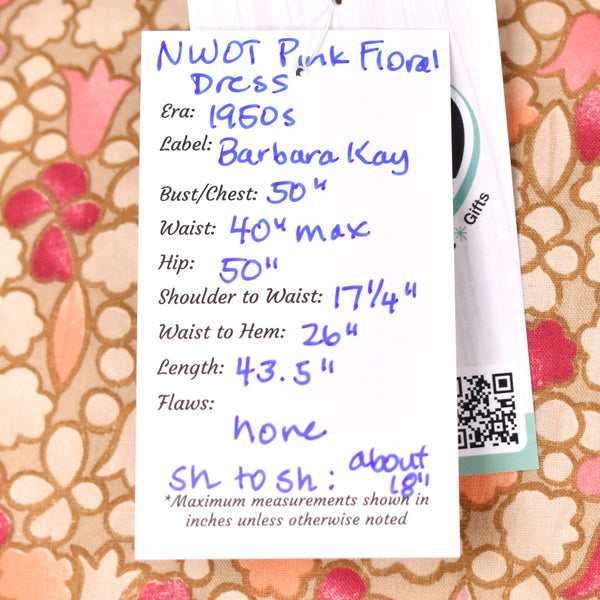 NWOT Pink Floral
Dress
Era: 1950s
Label: Barbara Kay
Bust/Chest: 50"
Waist: 40" max
Hip: 50"
Shoulder to Waist: 17 1/4"
Waist to Hem: 26"
Length: 43.5"
Flaws:
none
sh to sh: about
18"
*Maximum measurements shown in
inches unless otherwise noted
Gifts